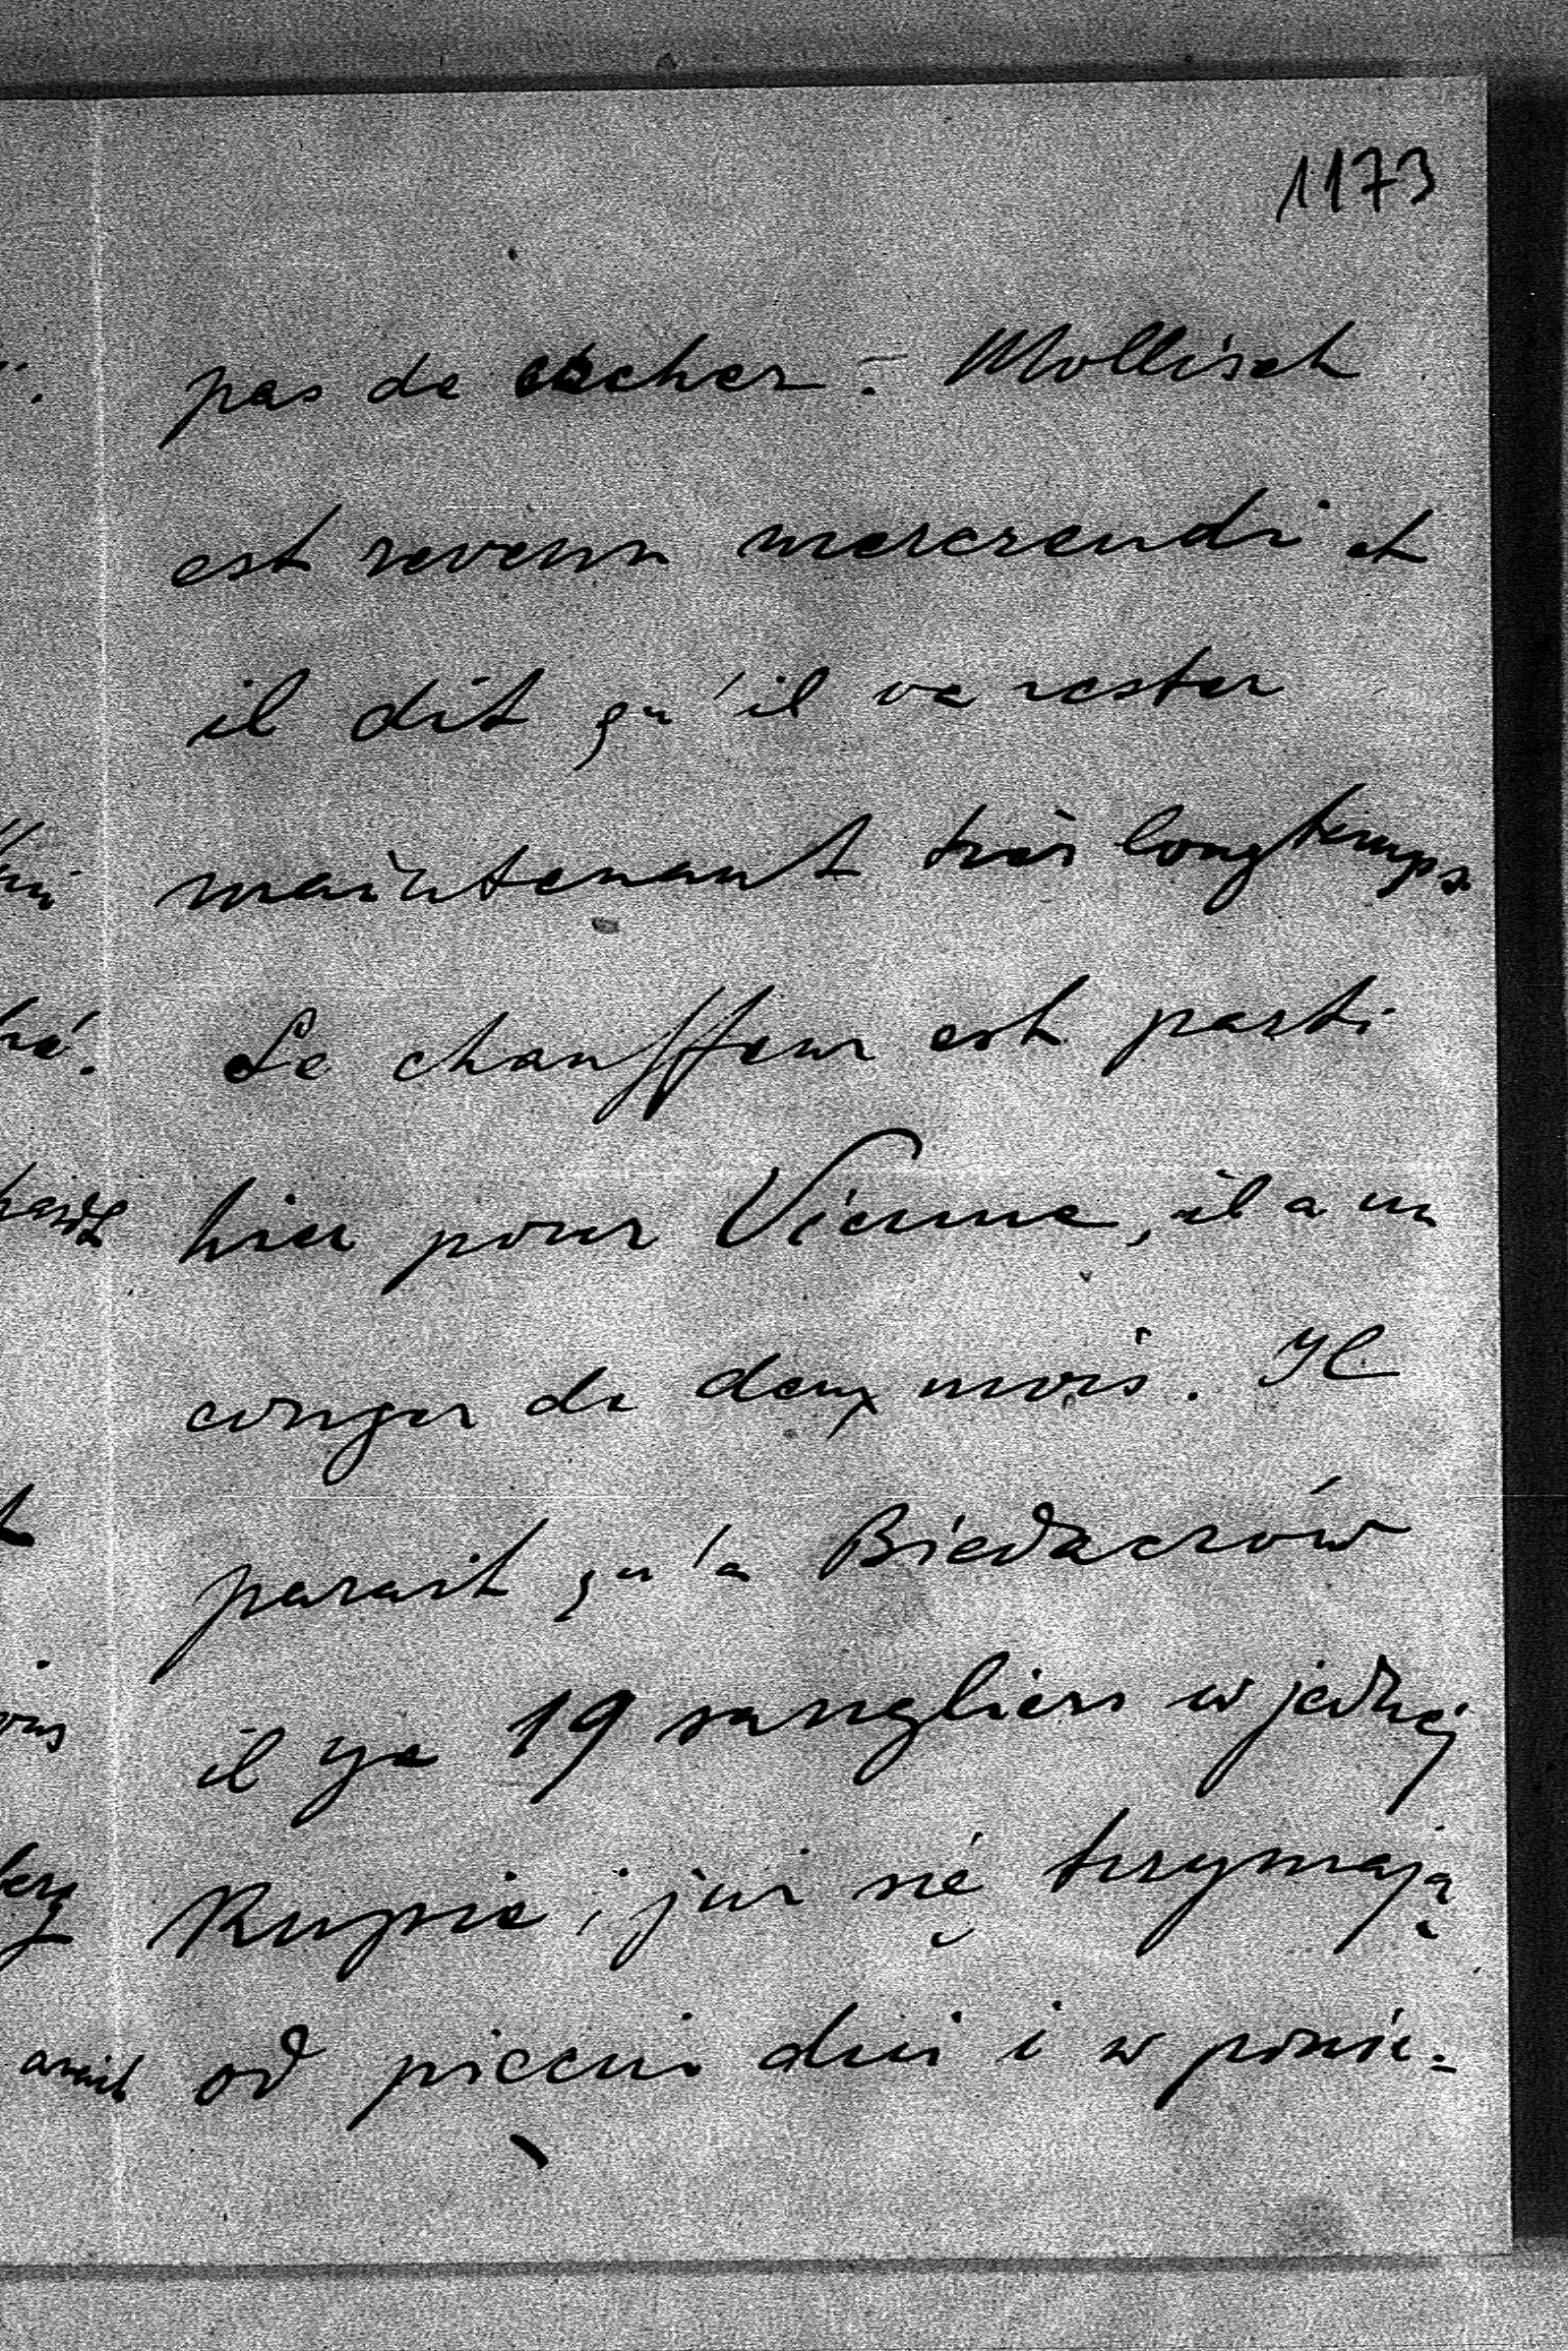 1173
pas de cocher. - Mollisch
est revenu mercrendi et
il dit qu'il va rester
maintenant très longtemps
Le chauffeur est parti
hier pour Vienne, il a un
conger de deux mois. Il
parait qu'a Biedaczów
il ya 19 sangliers w jednej
Kupie, już się trzymają
od pięciu dni i w ponie=